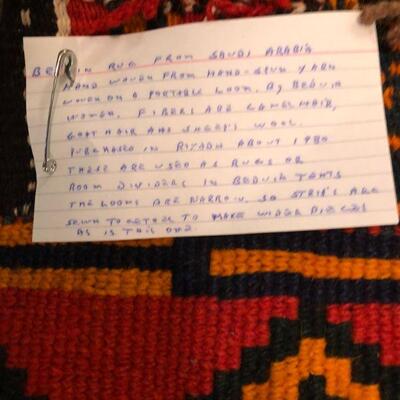 BE IN RUG FROM SAUDI ARABIA
HAND WOVEN FROM HAND-SPUN YARN
WOVEN ON A PORTABLE LOOM, BY BEDUIN
WOMEN. FIBERS ARE CAMEL HAIR,
GOAT HAIR AND SHEEPS WOOL.
PURCHASED IN RIYADH ABOUT 1980
THESE ARE USED AS RUGS OR
ROOM DIVIDERS IN BEDUIN TENTS
THE LOOMS ARE NARROW, SO STRIPS ARE
SEWN TOGETHER TO MAKE WIDER PIECES
AS IS THIS ONE.